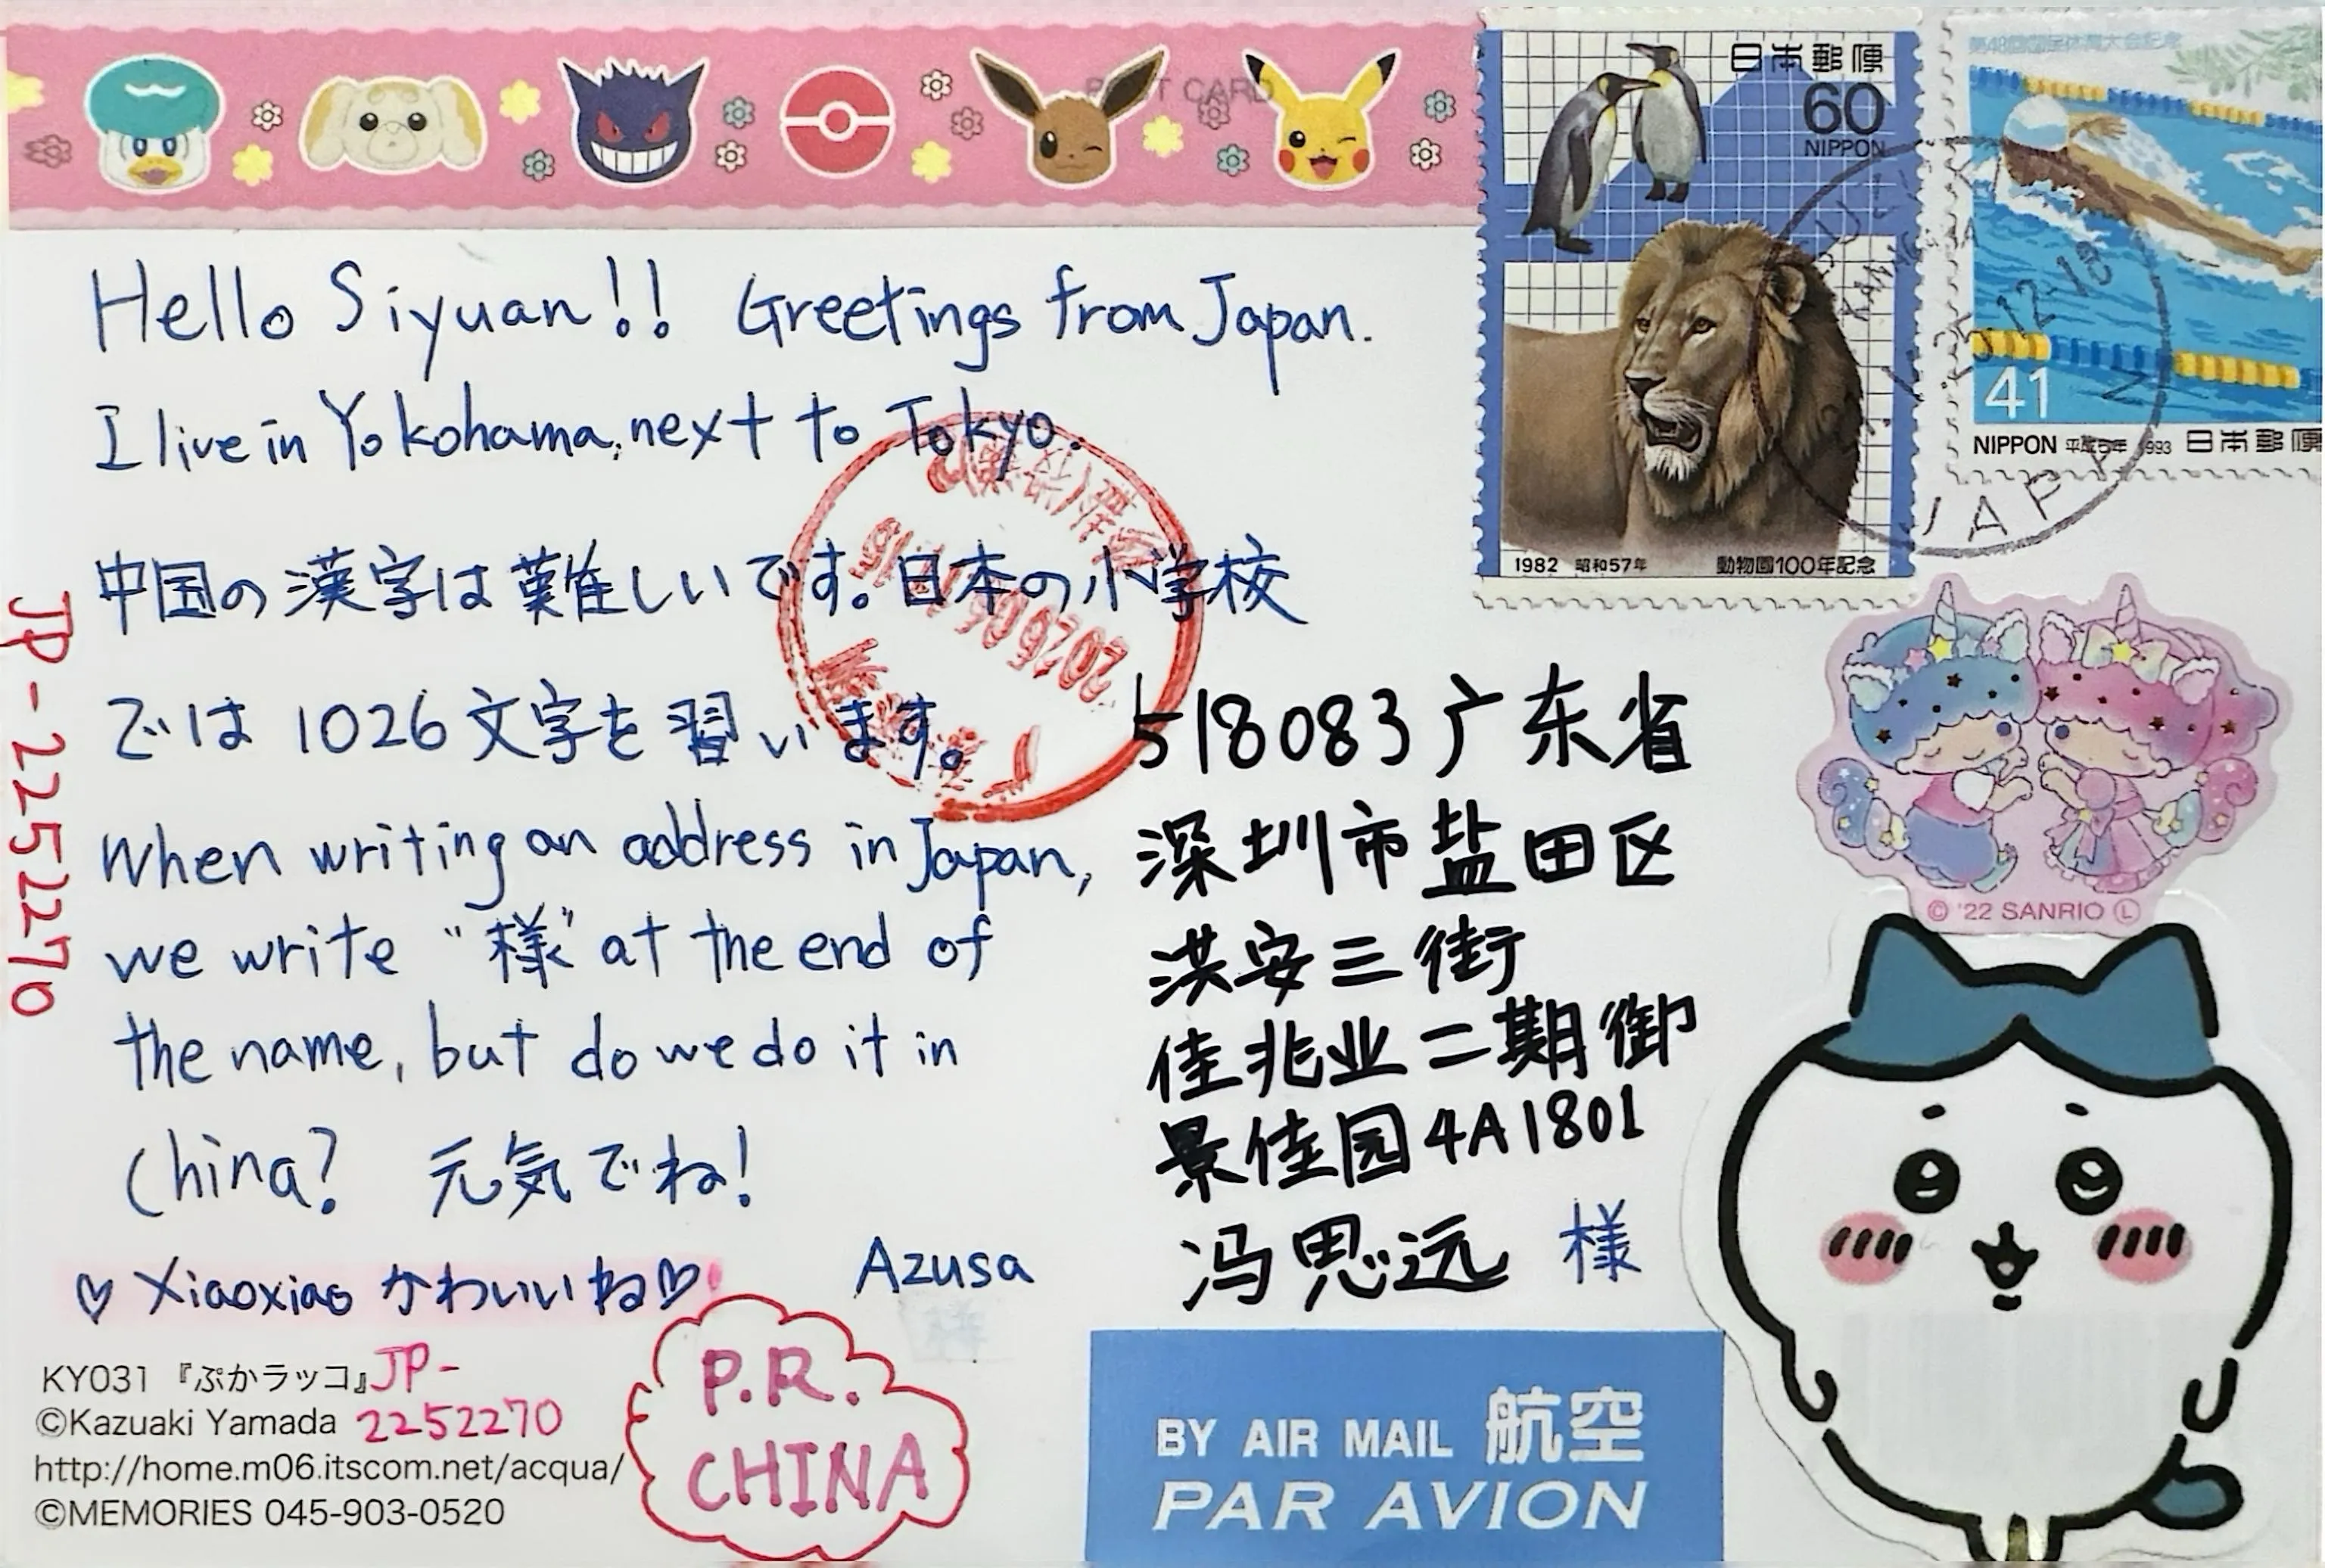 POST CARD
日本郵便
60
NIPPON
1982 昭和57年 動物園100年記念
第48回国民体育大会記念
41
NIPPON 平成5年 1993 日本郵便
12-18
JAPAN
Hello Siyuan!! Greetings from Japan.
I live in Yokohama, next to Tokyo.
中国の漢字は難しいです。日本の小学校
では 1026 文字を習います。
When writing an address in Japan,
we write "様" at the end of
the name, but do we do it in
China? 元気でね!
Azusa
♡ Xiaoxiao かわいいね♡
JP-2252270
518083 广东省
深圳市盐田区
洪安三街
佳兆业二期御
景佳园4A1801
冯思远 様
© '22 SANRIO Ⓛ
KY031 『ぷかラッコ』
©Kazuaki Yamada
http://home.m06.itscom.net/acqua/
©MEMORIES 045-903-0520
JP-
2252270
P.R.
CHINA
BY AIR MAIL 航空
PAR AVION